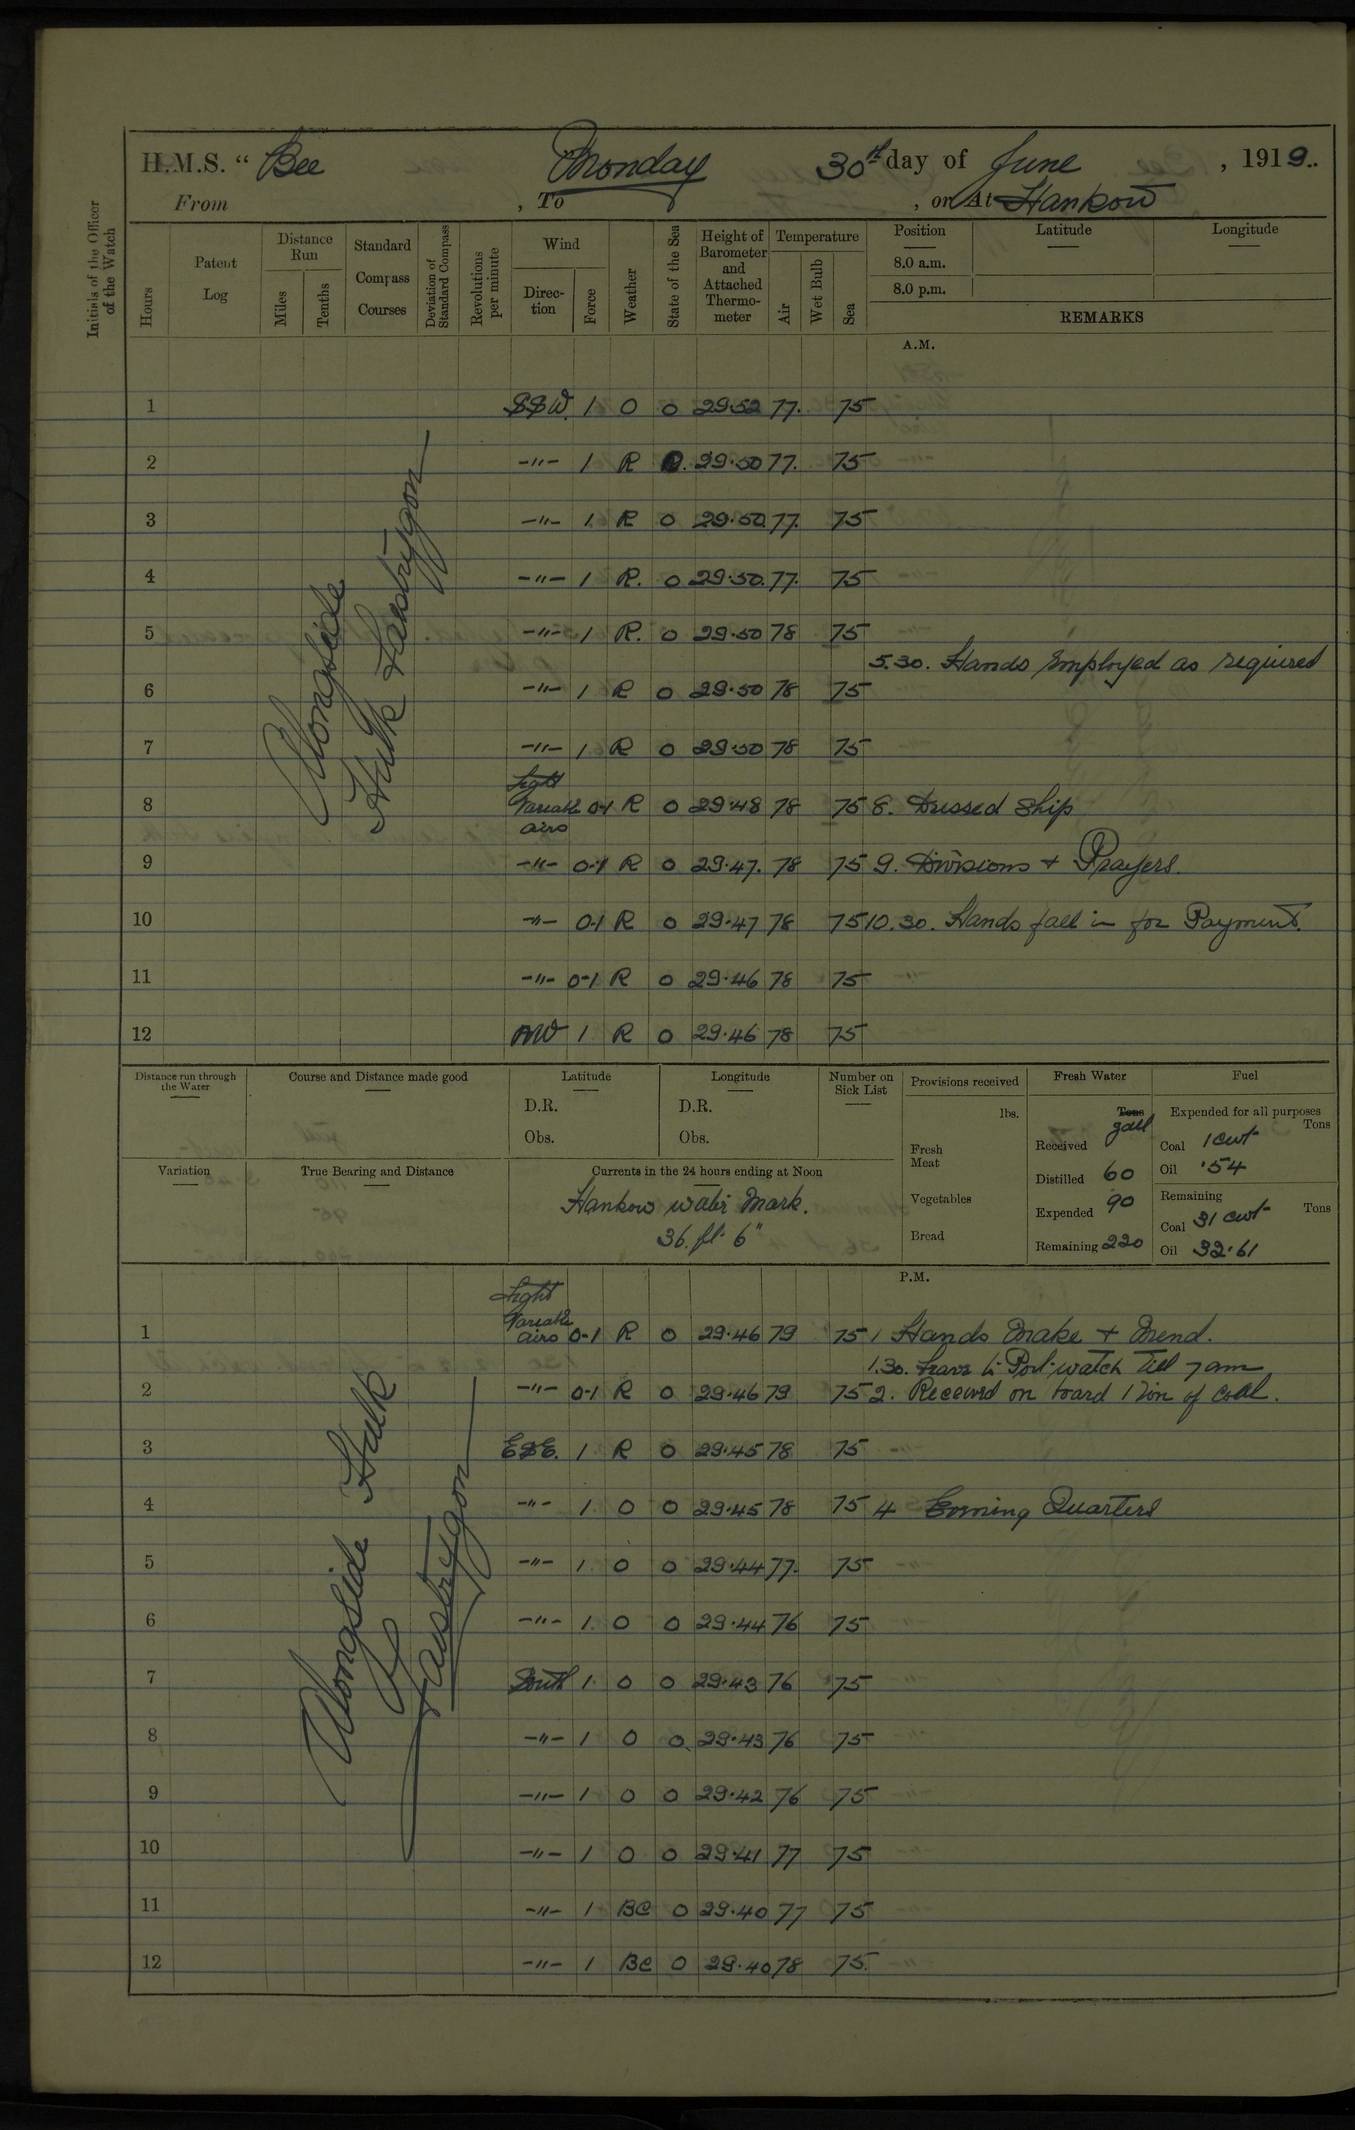 H.M.S. “ Bee Monday 30th day of June , 1919..
From , To , or At Hankow
Initials of the Officer of the Watch
Hours
Patent Log
Distance Run
Miles
Tenths
Standard Compass Courses
Deviation of Standard Compass
Revolutions per minute
Wind
Direction
Force
Weather
State of the Sea
Height of Barometer and Attached Thermometer
Temperature
Air
Wet Bulb
Sea
Position
8.0 a.m.
8.0 p.m.
Latitude
Longitude
REMARKS
A.M.
Alongside
Hulk
1 SSW. 1 O O 29.52 77. 75
2 -"- 1 R O. 29.50 77. 75
3 -"- 1 R O 29.50 77. 75
4 -"- 1 R. O 29.50. 77. 75
5 -"- 1 R. O 29.50 78 75
5.30. Hands Employed as required
6 -"- 1 R O 29.50 78 75
7 -"- 1 R O 29.50 78 75
8 Light Variable airs 0-1 R O 29.48 78 75 8. Dressed Ship
9 -"- 0-1 R O 29.47. 78 75 9. Divisions + Prayers.
10 -"- 0-1 R O 29.47 78 75 10.30. Hands fall in for Payment.
11 -"- 0-1 R O 29.46 78 75
12 NW 1 R O 29.46 78 75
Distance run through the Water
Course and Distance made good
Latitude
D.R.
Obs.
Longitude
D.R.
Obs.
Number on Sick List
Provisions received
lbs.
Fresh Meat
Vegetables
Bread
Fresh Water
Tons
gall
Received
Distilled 60
Expended 90
Remaining 220
Fuel
Expended for all purposes
Tons
Coal 1 cwt
Oil .54
Remaining
Tons
Coal 31 cwt
Oil 32.61
Variation
True Bearing and Distance
Currents in the 24 hours ending at Noon
Hankow water Mark.
36. ft. 6"
P.M.
Alongside Hulk
1 Light Variable airs 0-1 R O 29.46 79 75 1 Hands Make + Mend.
1.30. Leave to Port watch till 7 am
2 -"- 0-1 R O 29.46 79 75 2. Received on board 1 Ton of Coal.
3 ESE. 1 R O 29.45 78 75
4 -"- 1 O O 29.45 78 75 4 Evening Quarters
5 -"- 1 O O 29.44 77. 75
6 -"- 1. O O 29.44 76 75
7 South 1 O O 29.43 76 75
8 -"- 1 O O 29.43 76 75
9 -"- 1 O O 29.42 76 75
10 -"- 1 O O 29.41 77 75
11 -"- 1 BC O 29.40 77 75
12 -"- 1 BC O 29.40 78 75.